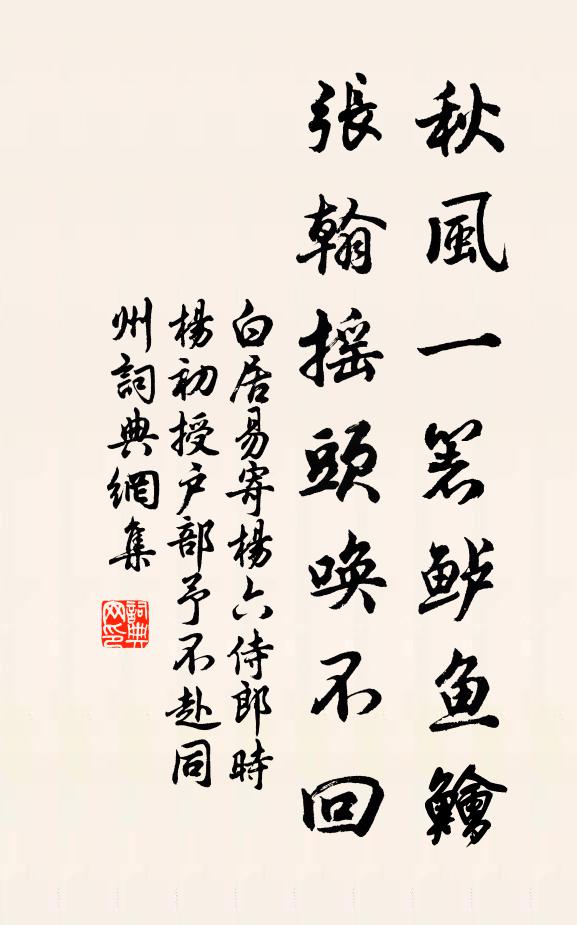 秋風一箸鲈鱼鱠
張翰摇頭喚不回
白居易寄楊六侍郎時
楊初授户部予不赴同
州詞典網集
詞典网印